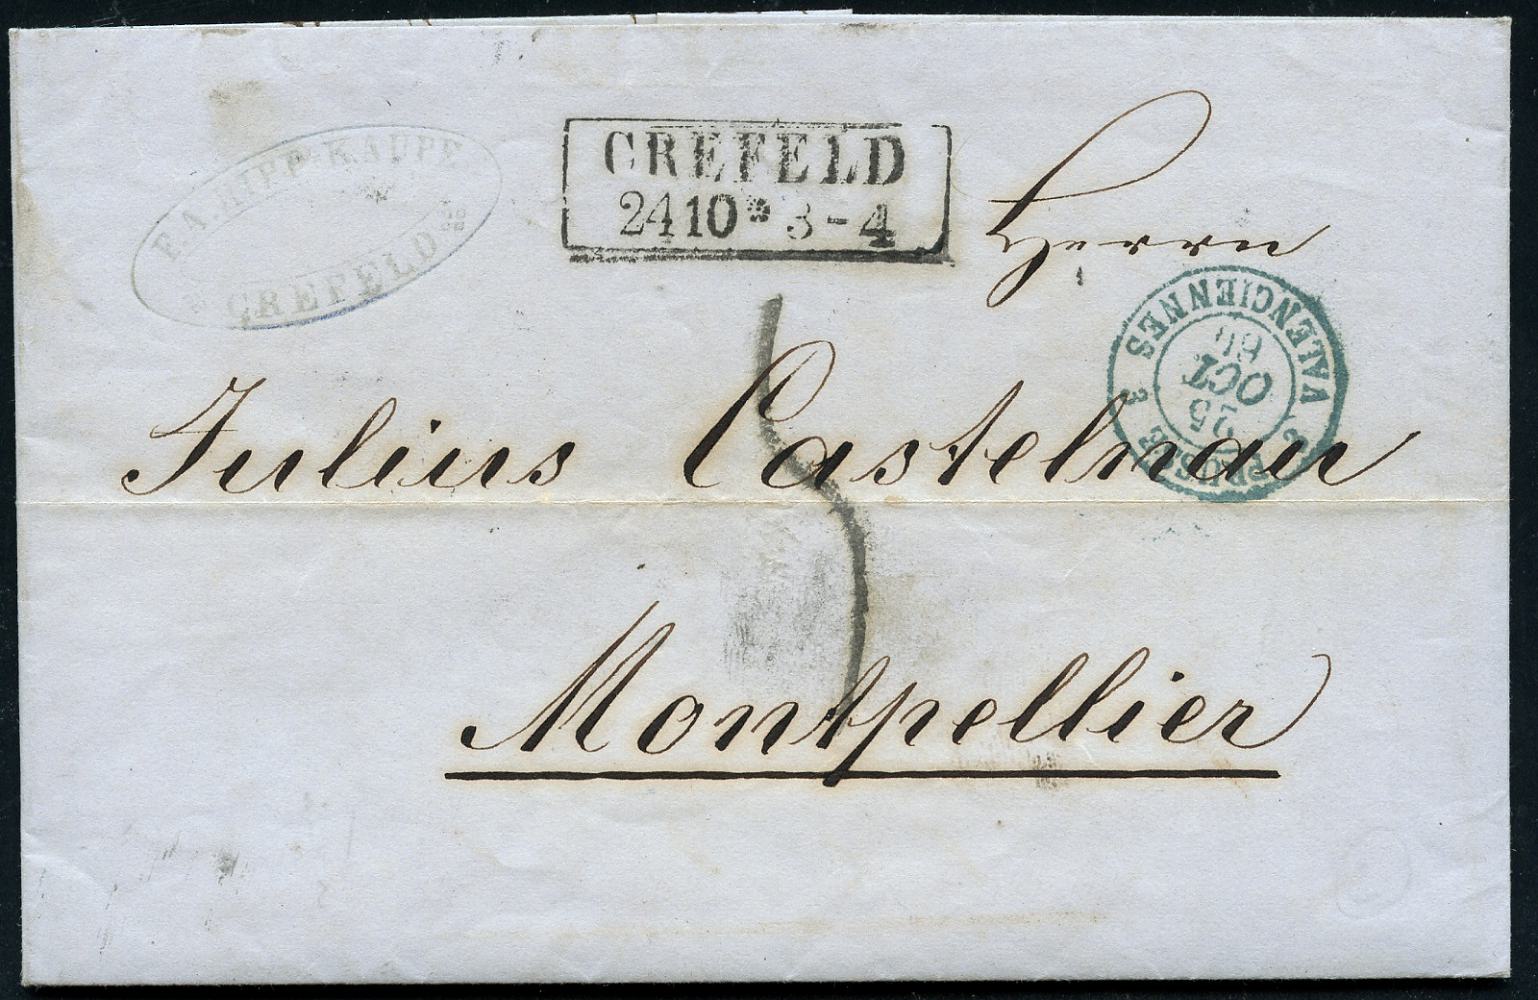 F.A. HIPP-KAUPE
CREFELD
CREFELD
24 10 * 3-4
Herrn
PRUSSE 3 VALENCIENNES 3
25
OCT
Julius Castelnau
5
Montpellier